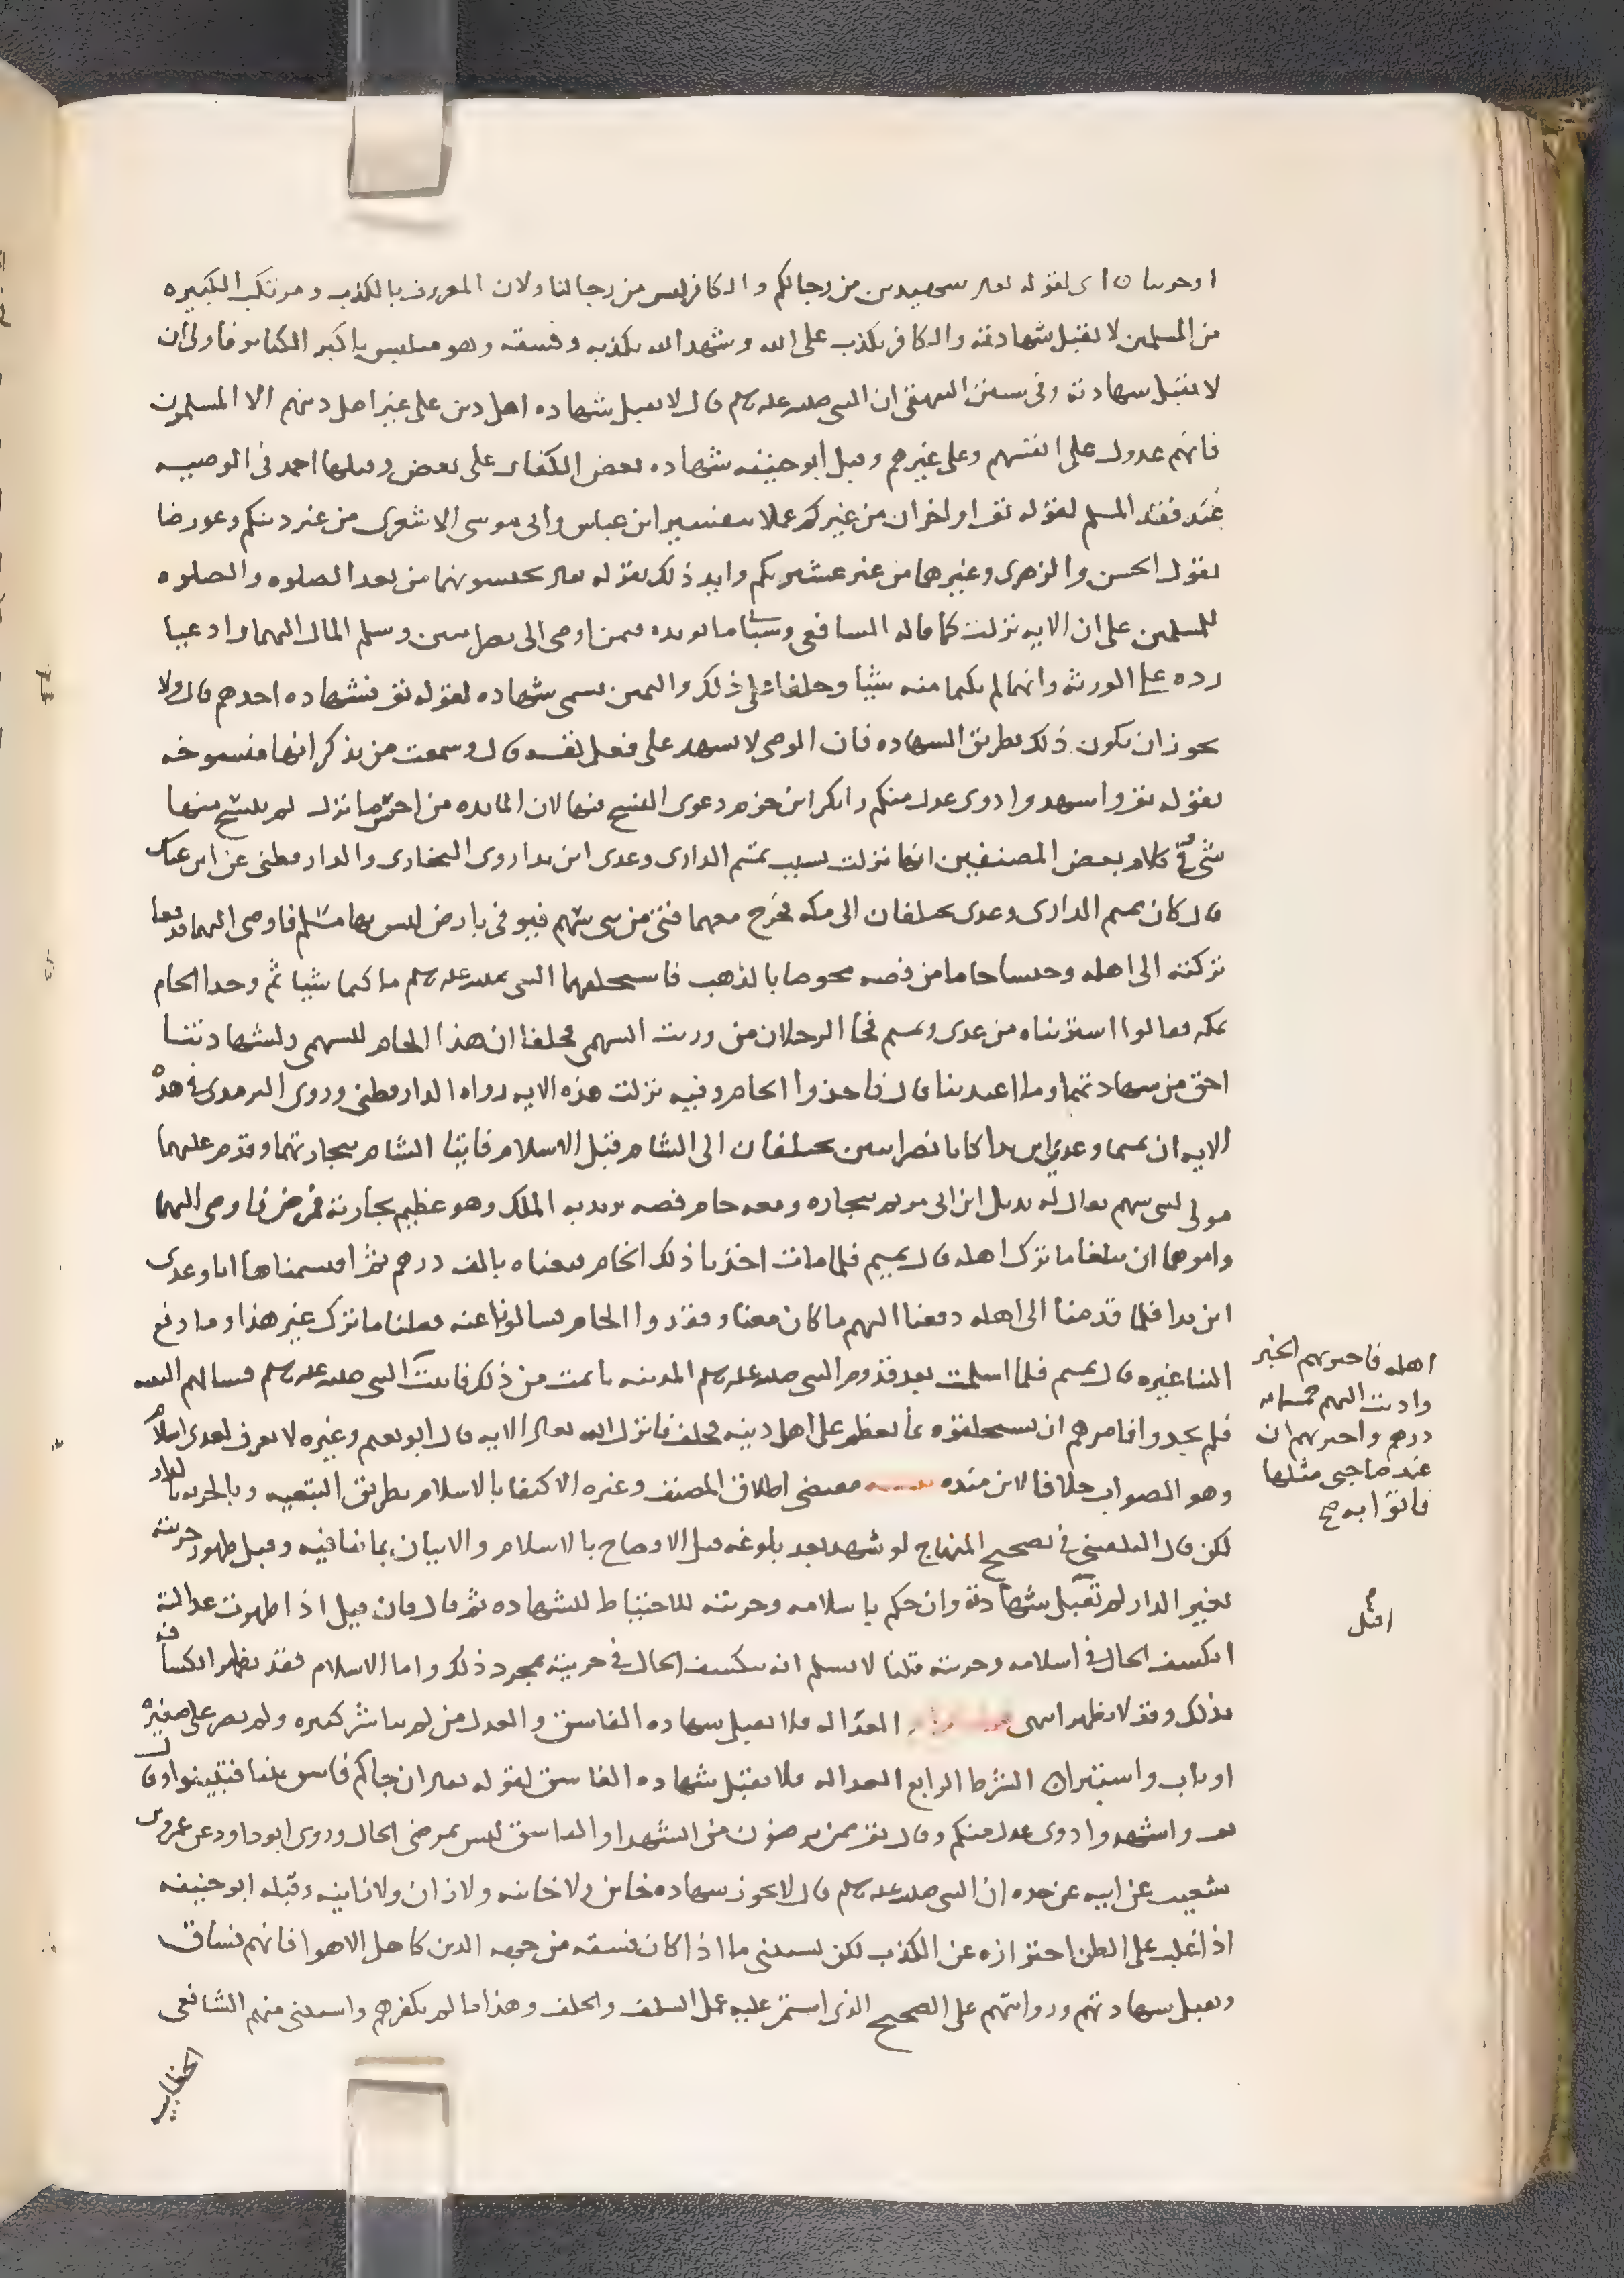 او حربيا ن اي لقوله تعالى شهيدين من رجالكم والكافر ليس من رجالنا ولان المعروف بالكذب ومرتكب الكبيره
من المسلمين لا تقبل شهادته والكافر يكذب على الله وشهد الله بكذبه وفسقه وهو متلبس باكبر الكبائر فاولى ان
لا تقبل شهادته وفي سنن البيهقي ان النبي صلى الله عليه وسلم قال لا تقبل شهاده اهل دين على غير اهل دينهم الا المسلمون
فانهم عدول على انفسهم وعلى غيرهم وقبل ابو حنيفه شهاده بعض الكفار على بعض وقبلها احمد في الوصيه
عند فقد المسلم لقوله تع او اخران من غيركم عملا بتفسير ابن عباس وابي موسى الاشعري من غير دينكم وعورضا
بقول الحسن والزهري وغيرهما من غير عشيرتكم وايد ذلك بقوله تعالى تحبسونهما من بعد الصلوه والصلوه
للمسلمين على ان الايه نزلت كما قاله الشافعي وسياتي ما يويده فيمن اوصى الى نصرانيين وسلم المال اليهما وادعيا
رده على الورثه وانهما لم يكتما منه شيا وحلفا على ذلك واليمين تسمى شهاده لقوله تع فشهاده احدهم قال ولا
يجوز ان يكون ذلك بطريق الشهاده فان الوصي لا يشهد على فعل نفسه قال وسمعت من يذكر انها منسوخه
بقوله تع واشهدوا ذوي عدل منكم وانكر ابن حزم دعوى النسخ فيها لان المايده من اخر ما نزل لم ينسخ منها
شي وفي كلام بعض المصنفين انها نزلت بسبب تميم الداري وعدي ابن بدا روى البخاري والدارقطني عن ابن عباس
قال كان تميم الداري وعدي يختلفان الى مكه فخرج معهما فتى من بني سهم فتوفي بارض ليس بها مسلم فاوصى اليهما فدفعا
تركته الى اهله وحبسا جاما من فضه مخوصا بالذهب فاستحلفهما النبي صلى الله عليه وسلم ما كتما شيا ثم وجدا الجام
بمكه فقالوا اشتريناه من عدي وتميم فجا الرجلان من ورثه السهمي فحلفا ان هذا الجام للسهمي ولشهادتنا
احق من شهادتهما وما اعتدينا قال فاخذوا الجام وفيه نزلت هذه الايه رواه الدارقطني وروى الترمذي في هذه
الايه ان تميما وعدي ابن بدا كانا نصرانيين يختلفان الى الشام قبل الاسلام فاتيا الشام بتجارتهما وقدم عليهما
مولى لبني سهم يقال له بديل ابن ابي مريم بتجاره ومعه جام فضه يريد به الملك وهو عظيم تجارته فمرض فاوصى اليهما
وامرهما ان يبلغا ما ترك اهله قال تميم فلما مات اخذنا ذلك الجام فبعناه بالف درهم ثم اقتسمناها انا وعدي
ابن بدا فلما قدمنا الى اهله دفعنا اليهم ما كان معنا وفقدوا الجام فسالونا عنه فقلنا ما ترك غير هذا وما دفع
الينا غيره قال تميم فلما اسلمت بعد قدوم النبي صلى الله عليه وسلم المدينه تاثمت من ذلك فاتيت النبي صلى الله عليه وسلم فسالهم البينه
فلم يجدوا فامرهم ان يستحلفوه بما يعظم على اهل دينه فحلف فانزل الله تعالى الايه قال ابو نعيم وغيره لا يعرف لعدي اسلام
وهو الصواب خلافا لابن منده مقتضى اطلاق المصنف وغيره الاكتفا بالاسلام بطريق التبعيه وبالحريه بالدار
لكن قال البلقيني في تصحيح المنهاج لو شهد بعد بلوغه قبل الافصاح بالاسلام والاتيان بما ينافيه وقبل ظهور حريته
بغير الدار لم تقبل شهادته وان حكم باسلامه وحريته للاحتياط للشهاده ثم قال فان قيل اذا ظهرت عدالته
انكشف الحال في اسلامه وحريته قلنا لا نسلم انه ينكشف الحال في حريته بمجرد ذلك واما الاسلام فقد يظهر انكشافه
بذلك وقد لا يظهر انتهى العداله فلا تقبل شهاده الفاسق والعدل من لم يباشر كبيره ولم يصر على صغيره
او تاب واستبران الشرط الرابع العداله فلا تقبل شهاده الفاسق لقوله تعالى ان جاكم فاسق بنبا فتبينوا وقال
تع واشهدوا ذوي عدل منكم وقال تع ممن ترضون من الشهدا والفاسق ليس بمرضي الحال وروى ابو داود عن عمرو بن
شعيب عن ابيه عن جده ان النبي صلى الله عليه وسلم قال لا يجوز شهاده خائن ولا خائنه ولا زان ولا زانيه وقبله ابو حنيفه
اذا غلب على الظن احترازه عن الكذب لكن يستثنى ما اذا كان فسقه من جهه الدين كاهل الاهوا فانهم فساق
وتقبل شهادتهم وروايتهم على الصحيح الذي استمر عليه عمل السلف والخلف وهذا ما لم نكفرهم واستثنى منهم الشافعي
الخطابيه
اهله فاخبرتهم الخبر
واديت اليهم خمسمايه
درهم واخبرتهم ان
عند صاحبي مثلها
فاتوا به صح